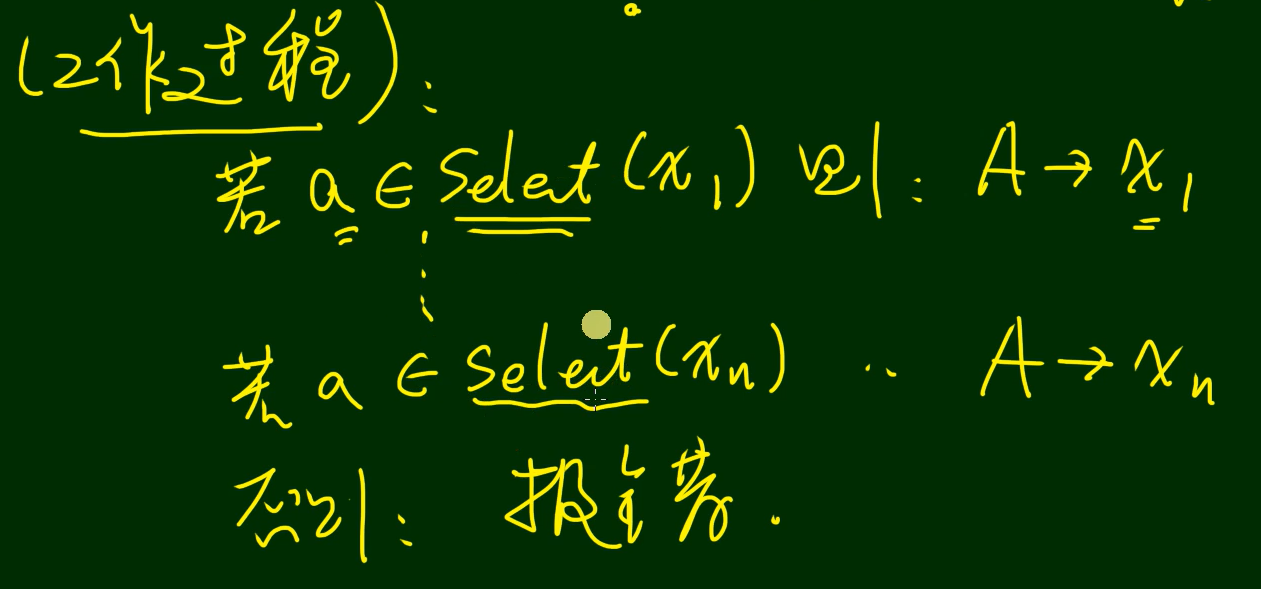 (工作过程):
若 a ∈ Select(x₁) 则: A → x₁
⋮
若 a ∈ Select(xₙ) .. A → xₙ
否则: 报错.